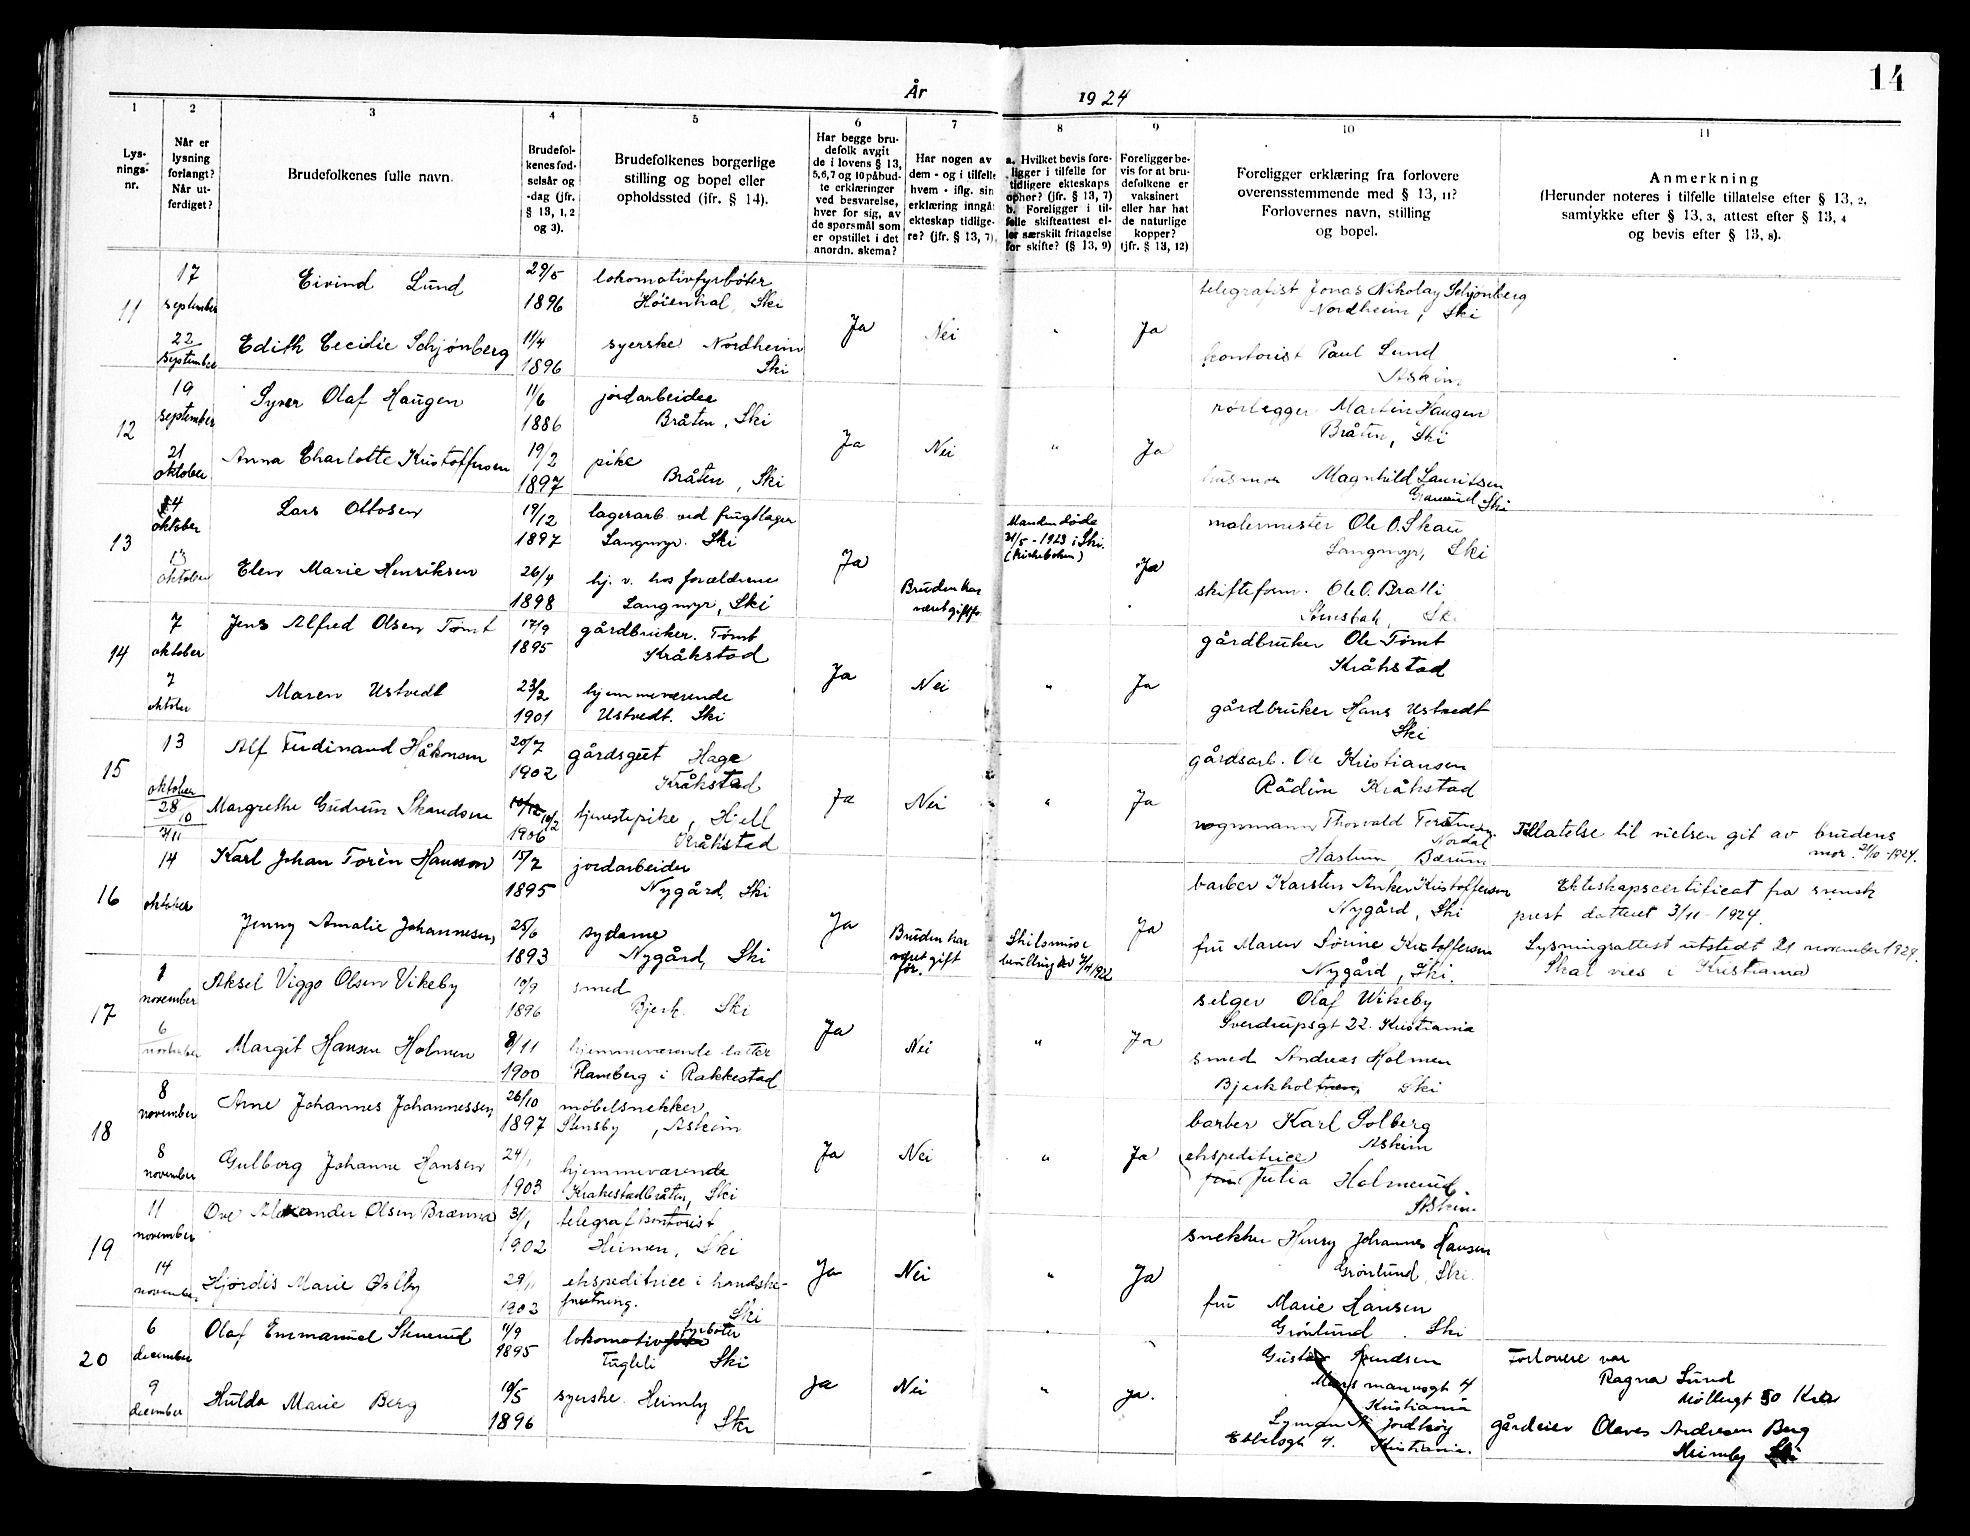 14
År 1924
1 2 3 4 5 6 7 8 9 10 11
Lys-
nings-
nr.
Når er
lysning
forlangt?
Når ut-
ferdiget?
Brudefolkenes fulle navn.
Brudefol-
kenes fød-
selsår og
-dag (jfr.
§ 13, 1, 2
og 3).
Brudefolkenes borgerlige
stilling og bopel eller
opholdssted (ifr. § 14).
Har begge bru-
defolk avgit
de i lovens § 13,
5,6,7 og 10 påbud-
te erklæringer
ved besvarelse,
hver for sig, av
de spørsmål som
er opstillet i det
anordn. skema?
Har nogen av
dem - og i tilfelle
hvem - iflg. sin
erklæring inngå
ekteskap tidlige-
re? (jfr. § 13, 7).
a. Hvilket bevis fore-
ligger i tilfelle for
tidligere ekteskaps
ophør? (jfr. § 13, 7)
b. Foreligger i til-
felle skifteattest el-
ler særskilt fritagelse
for skifte? (§ 13, 9)
Foreligger be-
vis for at bru-
defolkene er
vaksinert
eller har hat
de naturlige
kopper?
(jfr. § 13, 12)
Foreligger erklæring fra forlovere
overensstemmende med § 13, 11?
Forlovernes navn, stilling
og bopel.
Anmerkning
(Herunder noteres i tilfelle tillatelse efter § 13, 2,
samtykke efter § 13, 3, attest efter § 13, 4
og bevis efter § 13, 8).
11
17
september
Eivind Lund
29/5
1896
lokomotivfyrbøter
Høienhal, Ski
Ja Nei " Ja
telegrafist Jonas Nikolay Schjønberg
Nordheim, Ski
22
september
Edith Cecidie Schjønberg
11/4
1896
syerske Nordheim
Ski
kontorist Paul Lund
Askim
12
19
september
Syver Olaf Haugen
11/6
1886
jordarbeider
Bråten, Ski
Ja Nei " Ja
rørlegger Martin Haugen
Bråten, Ski
21
oktober
Anna Charlotte Kristoffersen
19/2
1897
pike
Bråten, Ski
husmor Magnhild Lauritsen
Ski
13
4
oktober
Lars Ottosen
19/12
1897
lagerarb. ved frugtlager
Langmyr. Ski
Ja
Manden døde
21/5 - 1923 i Ski.
(kirkeboken)
Ja
malermester Ole O. Skau
Langmyr, Ski
13
oktober
Elen Marie Henriksen
26/4
1898
hj. v. hos forældrene
Langmyr, Ski
Bruden har
været gift før
skifteform. Ole O. Bratli
Ski
14
7
oktober
Jens Alfred Olsen Tømt
17/9
1895
gårdbruker. Tømt
Kråkstad
Ja Nei " Ja
gårdbruker Ole Tømt
Kråkstad
7
oktober
Maren Ustvedt
23/2
1901
hjemmeværende
Ustvedt. Ski
gårdbruker Hans Ustvedt
Ski
15
13
oktober
Alf Ferdinand Håkonsen
20/7
1902
gårdsgut Hage
Kråkstad
Ja Nei " Ja
gårdsarb. Ole Kristiansen
Rådim Kråkstad
28/10
7/11
Margrethe Gudrun Skaudsen
10/12 10/2
1906
tjenestepike, Hiell
Kråkstad
vognmann Thorvald
Haslum Bærum
Tillatelse til vielsen git av brudens
mor. 21/10-1924.
16
14
oktober
Karl Johan Torèn Hansson
15/7
1895
jordarbeider
Nygård, Ski
Ja
Bruden har
været gift
før.
Skilsmisse
bevilling av 7/4 1922
Ja
barber Karsten Anker Kristoffersen
Nygård, Ski
Ekteskapscertificat fra svensk
prest datteret 3/11 - 1924.
Jenny Amalie Johannesen
25/6
1893
sydame
Nygård, Ski
fru Maren Sørine Kristoffersen
Nygård, Ski.
Lysningsattest utstedt 21 november 1924.
Skal vies i Kristiania
17
1
november
Aksel Viggo Olsen Vikeby
10/9
1896
smed
Bjerk. Ski
Ja Nei " Ja
selger Olaf Wikeby
Sverdrupsgt 22. Kristiania
6
november
Margit Hansen Holmen
8/11
1900
hjemmeværende datter
Flamberg i Rakkestad
smed Andreas Holmen
Ski
18
8
november
Arne Johannes Johannessen
26/10
1897
møbelsnekker
Stensby, Askim
Ja Nei " Ja
barber Karl Solberg
Askim
8
november
Gulborg Johanne Hansen
24/1
1903
hjemmeværende
Kråkestadbråten, Ski
ekspeditrice
fru Julia Holmerud
Askim
19
11
november
Ove Alexander Olsen Brænna
31/1
1902
telegrafkontorist
Heimen, Ski
Ja Nei " Ja
snekker Henry Johannes Hansen
Grønlund, Ski.
14
november
Hjørdis Marie Østby
29/1
1903
ekspeditrice i handske-
forretning.
Ski
fru Marie Hansen
Grønlund. Ski
20
6
december
Olaf Emmanuel Stenerud
11/9
1895
lokomotivfyrbøter
Fugleli Ski
Ja Nei " Ja.
Gustav
4
Kristiania
Forlovere var
Ragna Lund
Møllergt 50 Kra
9
december
Hulda Marie Berg
10/5
1896
syerske. Heimly
Ski
Ebbelsgt 4. Kristiania.
gårdeier Olaves Andresen Berg
Heimly Ski